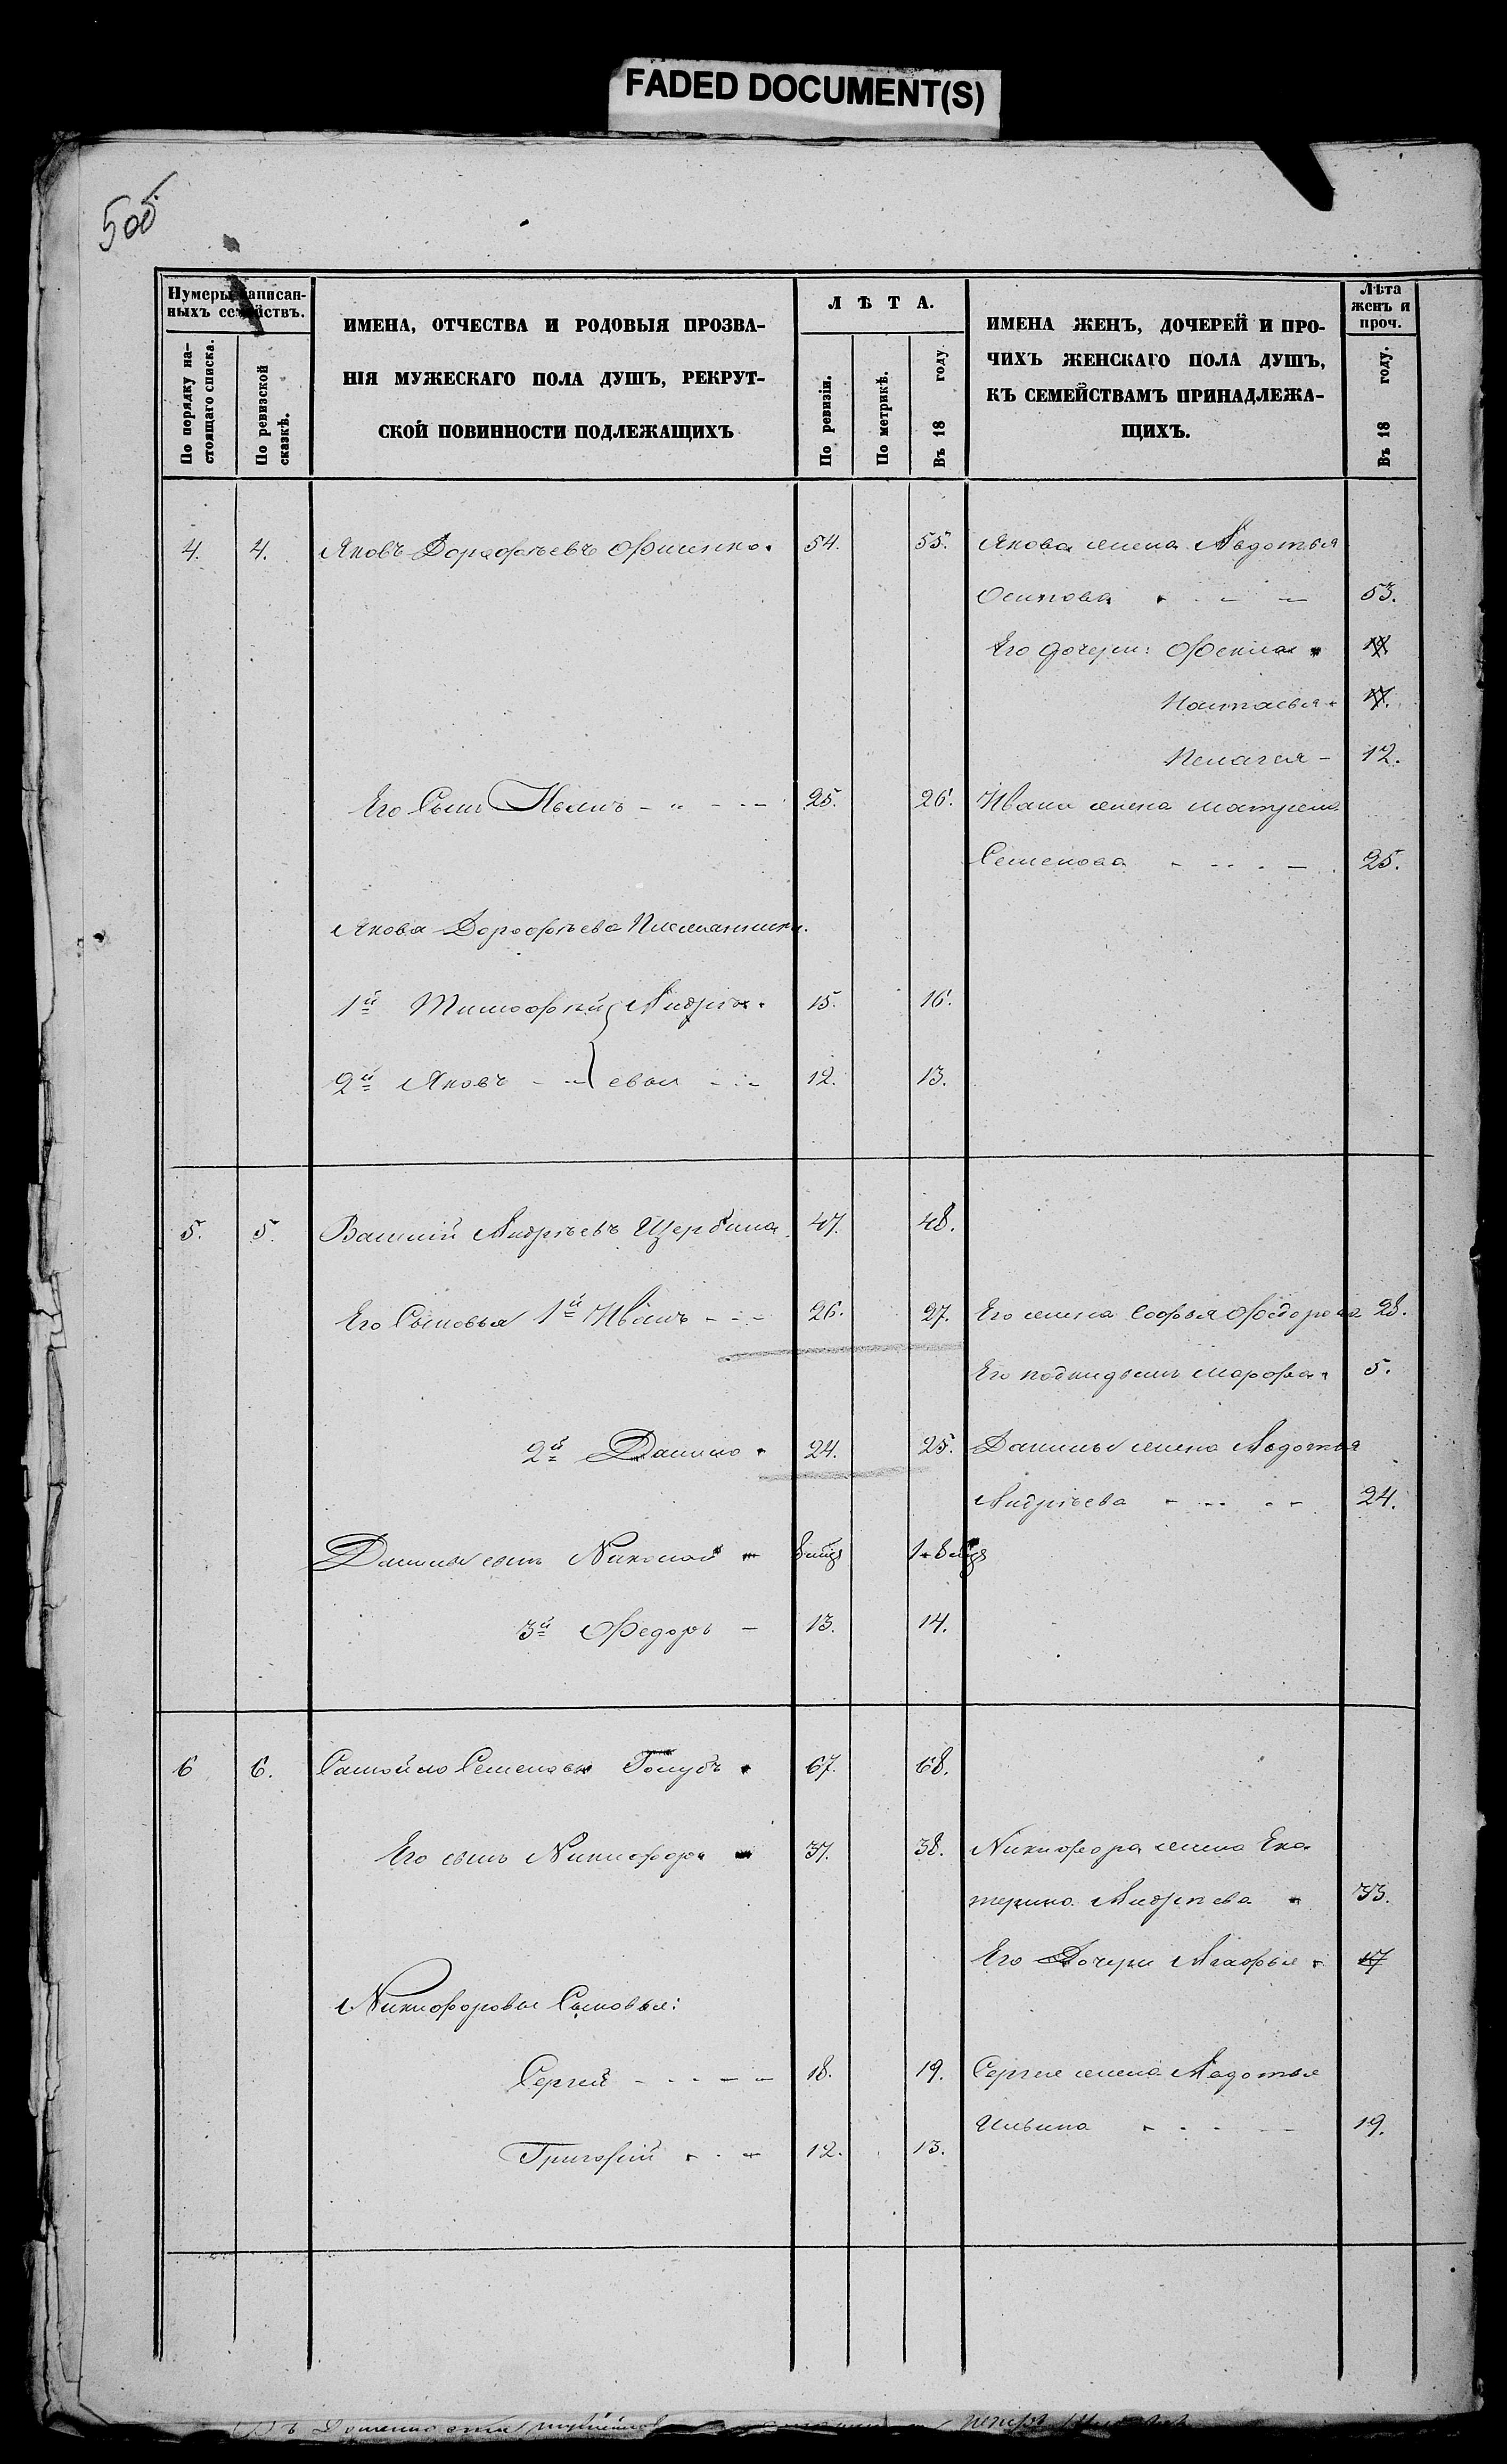 FADED DOCUMENT(S)
505
Нумеры записан-
ныхъ семействъ.
По порядку на-
стоящаго списка.
По ревизской
сказкѣ.
ИМЕНА, ОТЧЕСТВА И РОДОВЫЯ ПРОЗВА-
НІЯ МУЖЕСКАГО ПОЛА ДУШЪ, РЕКРУТ-
СКОЙ ПОВИННОСТИ ПОДЛЕЖАЩИХЪ
ЛѢТА.
По ревизіи.
По метрикѣ.
Въ 18 году.
ИМЕНА ЖЕНЪ, ДОЧЕРЕЙ И ПРО-
ЧИХЪ ЖЕНСКАГО ПОЛА ДУШЪ,
КЪ СЕМЕЙСТВАМЪ ПРИНАДЛЕЖА-
ЩИХЪ.
Лѣта
женъ и
проч.
Въ 18 году.
4. 4. Яковъ Дорофѣевъ 54. 55. Якова жена Авдотья
Осипова 53.
Его дочери: Фекла
Настасья 17.
Пелагея 12.
Его Сынъ Иванъ 25. 26. Ивана жена Матрена
Семенова 25.
Якова Дорофѣева Племянники.
1й Тимофей Андрѣ- 15. 16.
2й Яковъ евы 12. 13.
5. 5. Василій Андрѣевъ Щербина 47. 48.
Его Сыновья 1й Иванъ 26. 27. Его жена Софья Федорова 28.
Его подкидышъ Марфа 5.
2й Данило 24. 25. Данилы жена Авдотья
Андрѣева 24.
Данилы сынъ Николай
3й Федоръ 13. 14.
6 6. Самойло Семеновъ Голубъ 67. 68.
Его сынъ Никифоръ 37. 38. Никифора жена Ека
терина Андрѣева 33.
Его Дочери Агафья 17
Никифоровы Сыновья:
Сергей 18. 19. Сергея жена Авдотья
Ильина 19.
Григорій 12. 13.